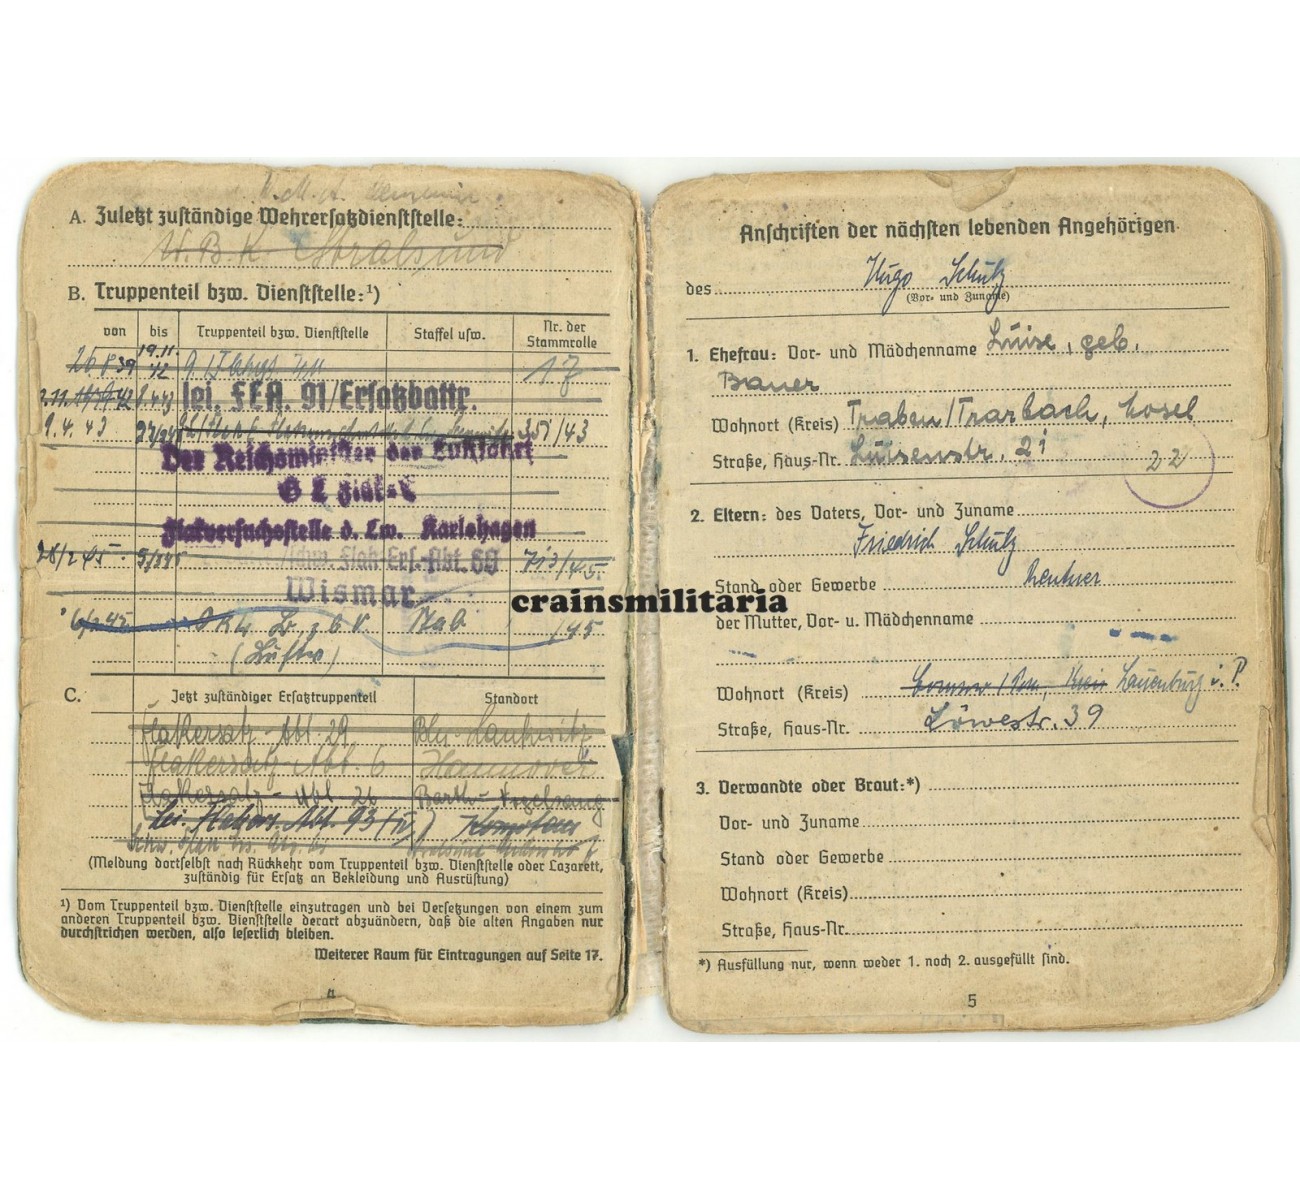 A. Zuletzt zuständige Wehrersatzdienststelle:
W.B.K. Stralsund
B. Truppenteil bzw. Dienststelle:¹)
von bis Truppenteil bzw. Dienststelle Staffel usw. Nr. der Stammrolle
26.8.39 19.11.42 17
lei. FEA. 91/Ersatzbattr.
9.4.43 351/43
Der Reichsminister der Luftfahrt
G L Flak-E
Flakversuchsstelle d. Lw. Karlshagen
28/2 45 schw. Flak-Ers.-Abt. 69 713/45
Wismar
z b V. Stab /45
(Luftw)
C. Jetzt zuständiger Ersatztruppenteil Standort
Flakersatz-Abt. 29 Bln. Lankwitz
Flakersatz-Abt. 6 Hannover
Flakersatz-Abt. 26 Barth-Vogelsang
lei. Flakers. Abt. 93
(Meldung dortselbst nach Rückkehr vom Truppenteil bzw. Dienststelle oder Lazarett,
zuständig für Ersatz an Bekleidung und Ausrüstung)
¹) Vom Truppenteil bzw. Dienststelle einzutragen und bei Versetzungen von einem zum
anderen Truppenteil bzw. Dienststelle derart abzuändern, daß die alten Angaben nur
durchstrichen werden, also leserlich bleiben.
Weiterer Raum für Eintragungen auf Seite 17.
4
Anschriften der nächsten lebenden Angehörigen
des Hugo Schulz
(Vor- und Zuname)
1. Ehefrau: Vor- und Mädchenname Luise, geb.
Bauer
Wohnort (Kreis) Traben/Trarbach, Mosel
Straße, Haus-Nr. Luisenstr. 21
22
2. Eltern: des Vaters, Vor- und Zuname
Friedrich Schulz
Stand oder Gewerbe Rentner
der Mutter, Vor- u. Mädchenname
Wohnort (Kreis) Lauenburg i. P.
Straße, Haus-Nr. Löwestr. 39
3. Verwandte oder Braut:*)
Vor- und Zuname
Stand oder Gewerbe
Wohnort (Kreis)
Straße, Haus-Nr.
*) Ausfüllung nur, wenn weder 1. noch 2. ausgefüllt sind.
5
crainsmilitaria